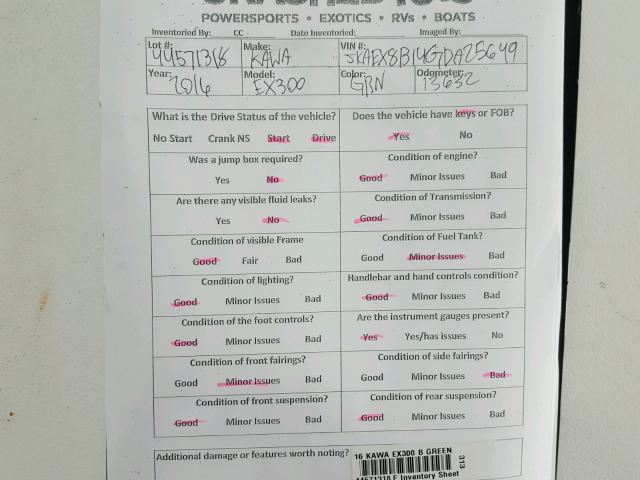 POWERSPORTS • EXOTICS • RVs • BOATS
Inventoried By: CC Date Inventoried: Imaged By:
Lot #: 44571318 Make: KAWA VIN #: JKAEX8B14GDA25649
Year: 2016 Model: EX300 Color: GRN Odometer: 13652
What is the Drive Status of the vehicle? Does the vehicle have keys or FOB?
No Start Crank NS Start Drive Yes No
Was a jump box required? Condition of engine?
Yes No Good Minor Issues Bad
Are there any visible fluid leaks? Condition of Transmission?
Yes No Good Minor Issues Bad
Condition of visible Frame Condition of Fuel Tank?
Good Fair Bad Good Minor Issues Bad
Condition of lighting? Handlebar and hand controls condition?
Good Minor Issues Bad Good Minor Issues Bad
Condition of the foot controls? Are the instrument gauges present?
Good Minor Issues Bad Yes Yes/has issues No
Condition of front fairings? Condition of side fairings?
Good Minor Issues Bad Good Minor Issues Bad
Condition of front suspension? Condition of rear suspension?
Good Minor Issues Bad Good Minor Issues Bad
Additional damage or features worth noting?
16 KAWA EX300 B GREEN
313
44571318 F Inventory Sheet